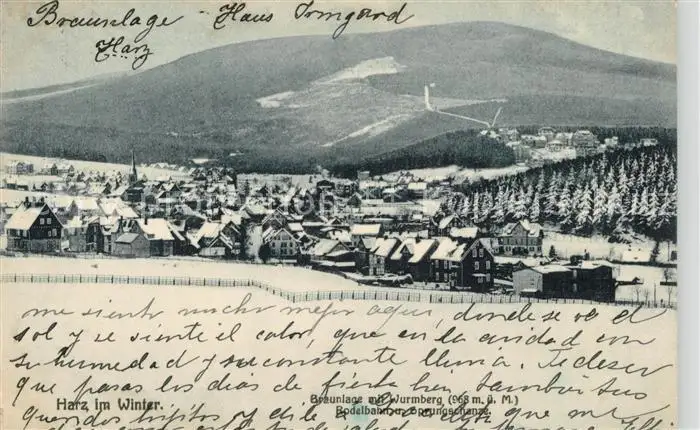 Braunlage - Haus Irmgard
Harz
me siento mucho mejor aqui, donde se ve el
sol y se siente el calor, que en la ciudad con
su humedad y su constante lluvia. Te deseo
que pases los dias de fiesta bien, tambien tus
Harz im Winter.
Braunlage mit Wurmberg (968 m. ü. M.)
Rodelbahn u. Sprungschanze.
queridos hijitos y que me